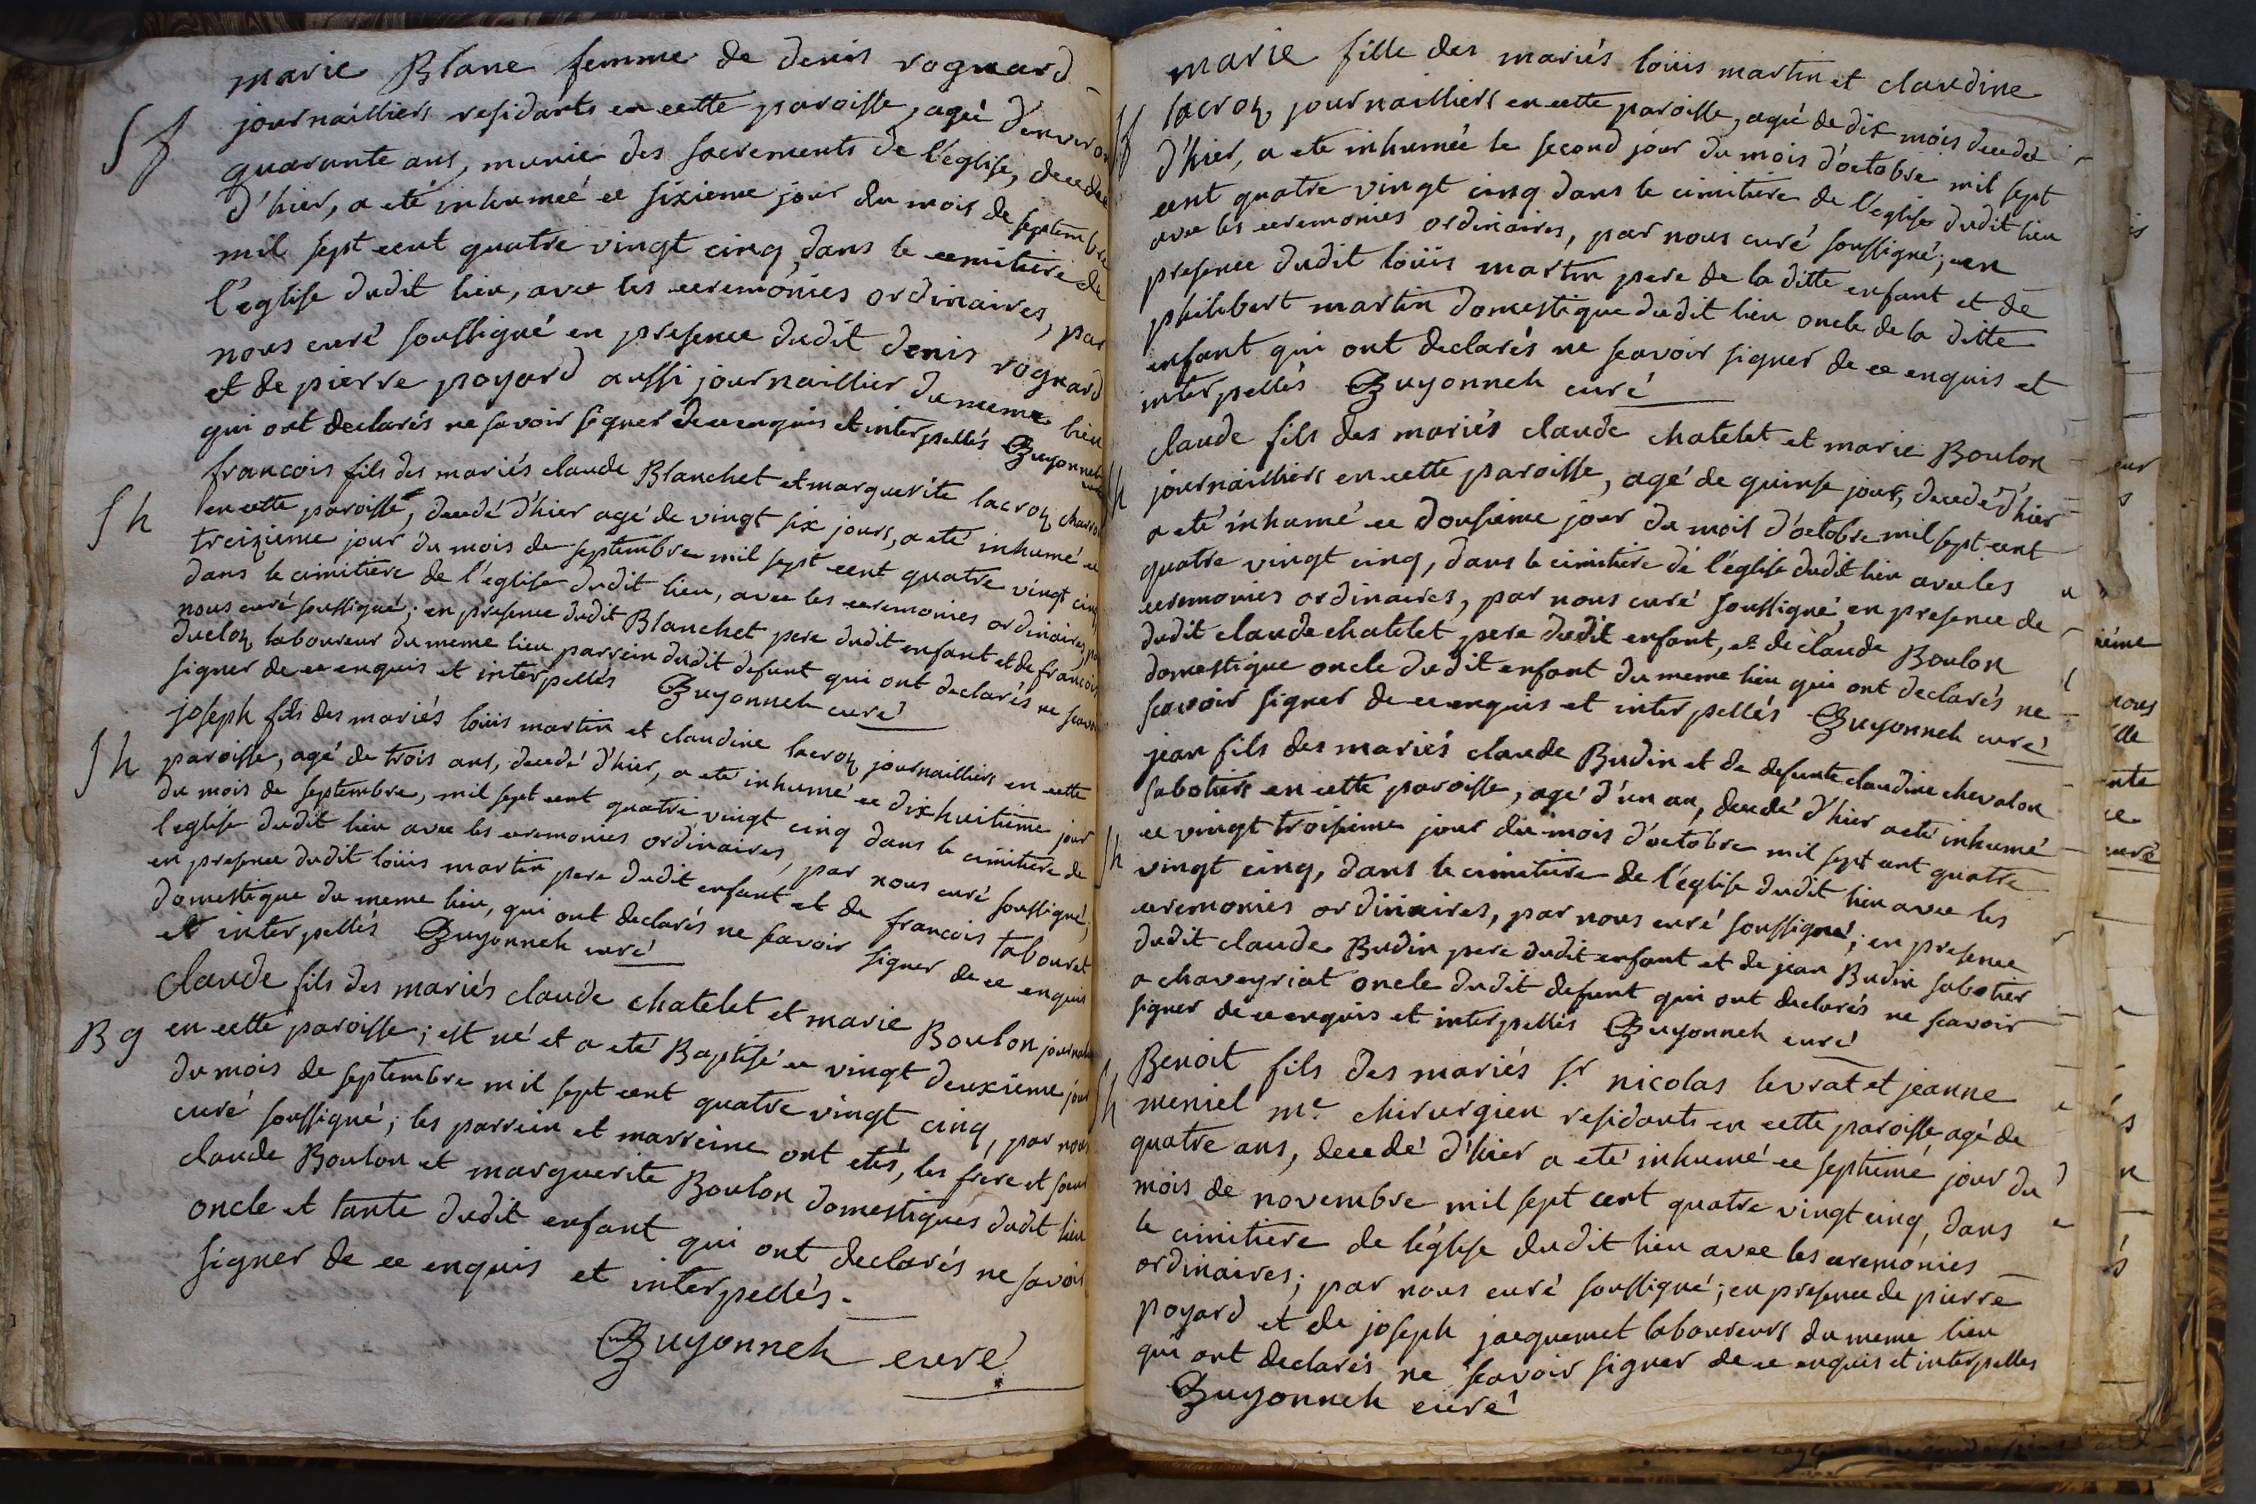 marie Blanc femme de denis rognard
Sf journailliers residants en cette paroisse, agée d'environ
quarante ans, munie des sacrements de l'église, decedée
d'hier, a eté inhumeé ce sixieme jour du mois de septembre
mil sept cent quatre vingt cinq dans le cemitiere de
l'eglise dudit lieu, avec les ceremonies ordinaires, par
nous curé soussigné en presence dudit denis rognard
et de pierre poyard aussi journaillier du meme lieu
qui ont declarés ne savoir signer de ce enquis et interpellés Guyonneh curé
francois fils des mariés claude Blanchet et marguerite lacroz
Sh en cette paroisse, decedé d'hier agé de vingt six jours, a eté inhumé ce
treizieme jour du mois de septembre mil sept cent quatre vingt cinq
dans le cimitiere de l'eglise dudit lieu, avec les ceremonies ordinaires, par
nous curé soussigné; en presence dudit Blanchet pere dudit enfant et de francois
ducloz laboureur du meme lieu parrein dudit defunt qui ont declarés ne scavoir
signer de ce enquis et interpellés Guyonneh curé
joseph fils des mariés loüis martin et claudine lacroz journailliers en cette
Sh paroisse, agé de trois ans, decedé d'hier, a eté inhumé ce dixhuitieme jour
du mois de septembre, mil sept cent quatre vingt cinq dans le cimitiere de
l'eglise dudit lieu avec les ceremonies ordinaires, par nous curé soussigné;
en presence dudit loüis martin pere dudit enfant et de francois tabouret
domestique du meme lieu, qui ont declarés ne scavoir signer de ce enquis
et interpellés Guyonneh curé
claude fils des mariés claude chatelet et marie Boulon
Bg en cette paroisse; est né et a eté Baptisé ce vingt deuxieme jour
du mois de septembre mil sept cent quatre vingt cinq, par nous
curé soussigné; les parrein et marreine ont etés, les frere et soeur
claude Boulon et marguerite Boulon domestiques dudit lieu
oncle et tante dudit enfant qui ont declarés ne savoir
signer de ce enquis et interpellés.
Guyonneh curé
marie fille des mariés loüis martin et claudine
Sf lacroz, journailliers en cette paroisse, agée de dix mois decedée
d'hier, a ete inhumée le second jour du mois d'octobre mil sept
cent quatre vingt cinq dans le cimitiere de l'eglise dudit lieu
avec les ceremonies ordinaires, par nous curé soussigné; en
presence dudit loüis martin pere de la ditte enfant et de
philibert martin domestique dudit lieu oncle de la ditte
enfant qui ont declarés ne scavoir signer de ce enquis et
interpellés Guyonneh curé
claude fils des mariés claude chatelet et marie Boulon
Sh journailliers en cette paroisse, agé de quinse jours, decedé d'hier
a eté inhumé ce dousieme jour du mois d'octobre mil sept cent
quatre vingt cinq, dans le cimitiere de l'église dudit lieu avec les
ceremonies ordinaires, par nous curé soussigné, en presence de
dudit claude chatelet pere dudit enfant, et de claude Boulon
domestique oncle dudit enfant du meme lieu qui ont declarés ne
scavoir signer de ce enquis et interpellés Guyonneh curé
jean fils des mariés claude Budin et de defunte claudine chevalon
sabotiers en cette paroisse, agé d'un an, decedé d'hier a eté inhumé
Sh ce vingt troisieme jour du mois d'octobre mil sept cent quatre
vingt cinq, dans le cimitiere de l'église dudit lieu avec les
ceremonies ordinaires, par nous curé soussigné; en presence
dudit claude Budin pere dudit enfant et de jean Budin sabotier
a chaveyriat oncle dudit defunt qui ont declarés ne scavoir
signer de ce enquis et interpellés Guyonneh curé
Benoit fils des mariés sr nicolas levrat et jeanne
Sh meniel me chirurgien residants en cette paroisse agé de
quatre ans, decedé d'hier a eté inhumé ce septieme jour du
mois de novembre mil sept cent quatre vingt cinq, dans
le cimitiere de l'église dudit lieu avec les ceremonies
ordinaires; par nous curé soussigné; en presence de pierre
poyard et de joseph jacquemet laboureurs du meme lieu
qui ont declarés ne scavoir signer de ce enquis et interpellés
Guyonneh curé